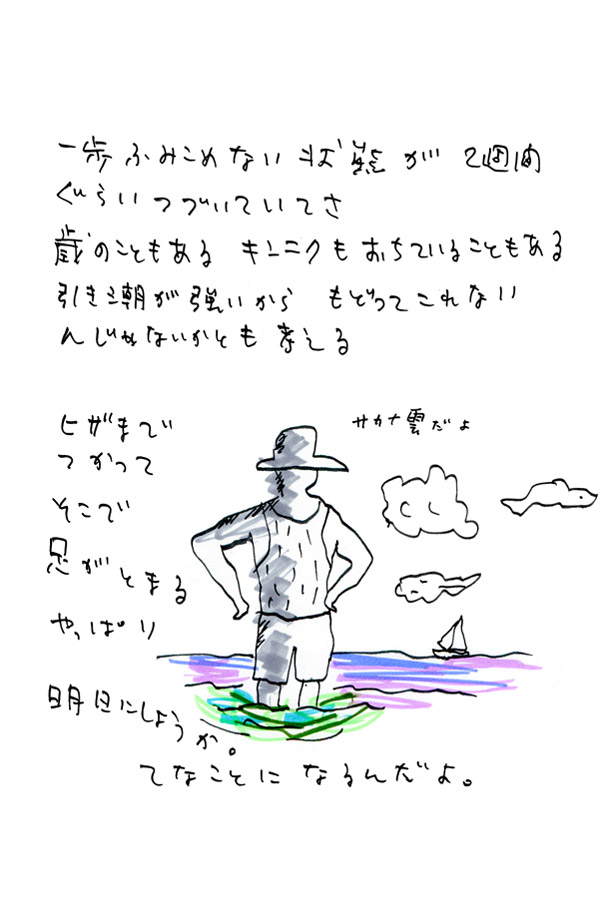 一歩ふみこめない状態が2週間
ぐらいつづいていてさ
歳のこともある キンニクもおちていることもある
引き潮が強いから もどってこれない
んじゃないかとも考える
サカナ雲だよ
ヒザまで
つかって
そこで
足がとまる
やっぱり
明日にしようか。
てなことになるんだよ。